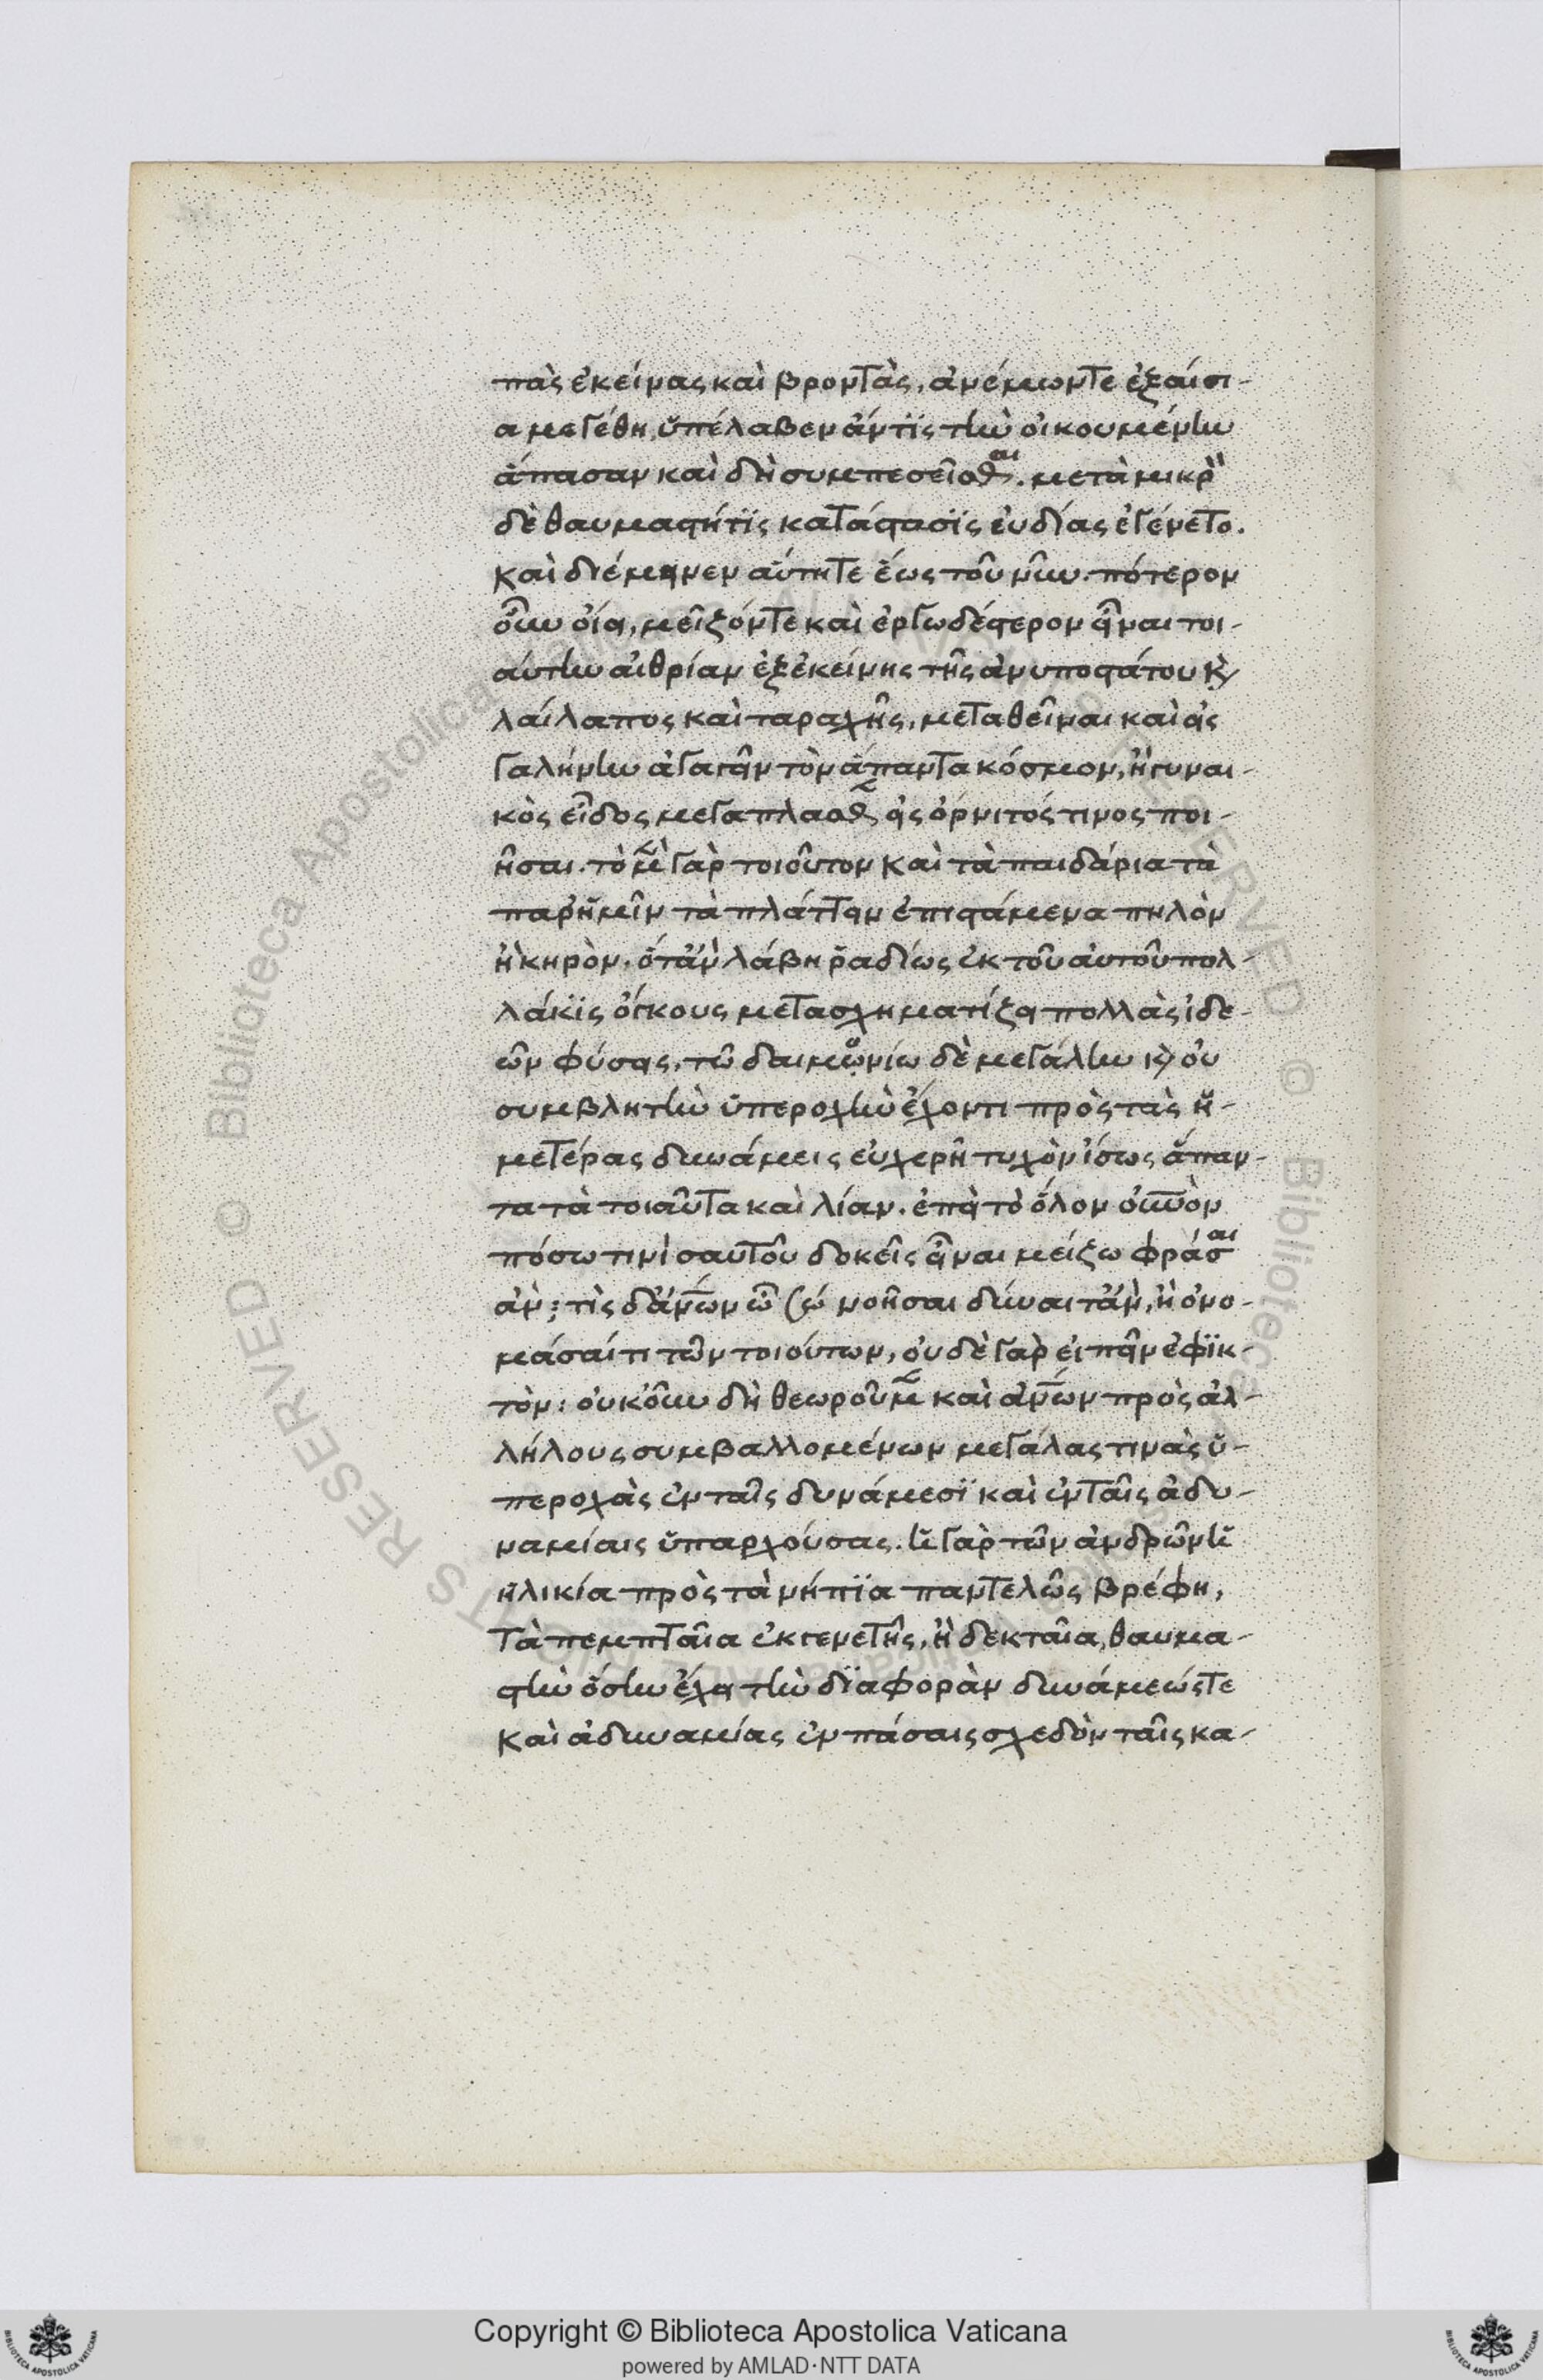 πὰς ἐκείνας καὶ βροντὰς, ἀνέμωντε ἐξαίσι-
α μεγέθη, ὑπέλαβεν ἄντϊς τὴν οἰκουμένην
ἅπασαν καὶ δὴ συμπεσεῖσθαι. μετὰ μικρὸν
δὲ θαυμαστήτϊς κατάστασϊς εὐδίας ἐγένετο.
καὶ διέμεινεν αὕτητε ἕως τοῦ νῦν. πότερον
οὖν οἴει, μεῖζόντε καὶ ἐργωδέστερον εἶναι τοι-
αύτην αἰθρίαν ἐξ ἐκείνης τῆς ἀνυποστάτου κὶ
λαίλαπος καὶ ταραχῆς, μεταθεῖναι καὶ εἰς
γαλήνην ἀγαγεῖν τὸν ἅπαντα κόσμον, ἢ γυναι-
κὸς εἶδος μεταπλασθὲν εἰς ὄρνιτός τινος ποι-
ῆσαι. τὸ μὲν γὰρ τοιοῦτον καὶ τὰ παιδάρια τὰ
παρ' ἡμῖν τὰ πλάττειν ἐπιστάμενα πηλὸν
ἢ κηρὸν. ὅτἂν λάβη ῥαδίως ἐκ τοῦ αὐτοῦ πολ-
λάκϊς ὄγκους μετασχηματίζει πολλὰς ἰδε-
ῶν φύσεις. τῶ δαιμονίω δὲ μεγάλην κὶ οὐ
συμβλητὴν ὑπεροχὴν ἔχοντι πρὸς τὰς ἡ-
μετέρας δυνάμεις εὐχερῆ τυχὸν ἴσως ἅπαν-
τα τὰ τοιαῦτα καὶ λίαν. ἐπεὶ τὸ ὅλον οὐνὸν
πόσω τινὶ σαυτοῦ δοκεῖς εἶναι μείζω φράσαι
ἂν; τὶς δ' ἀνων ὦ σώ νοῆσαι δύναιτ' ἂν, ἢ ὀνο-
μάσαί τι τῶν τοιούτων, οὐδὲ γὰρ εἰπεῖν ἐφϊκ-
τὸν: οὐκοῦν δὴ θεωροῦμεν καὶ ἀνων πρὸς ἀλ-
λήλους συμβαλλομένων μεγάλας τινὰς ὑ-
περοχὰς ἐν ταῖς δυνάμεσϊ καὶ ἐν ταῖς ἀδυ-
ναμίαις ὑπαρχούσας. ἡ γὰρ τῶν ἀνδρῶν ἡ
ἡλικία πρὸς τὰ νήπϊα παντελῶς βρέφη,
τὰ πεμπταῖα ἐκ γενετῆς, ἢ δεκταῖα, θαυμα-
στὴν ὅσην ἔχει τὴν δϊαφορὰν δυνάμεώςτε
καὶ ἀδυναμίας ἐν πάσαις σχεδὸν ταῖς κα-
Copyright © Biblioteca Apostolica Vaticana
powered by AMLAD·NTT DATA